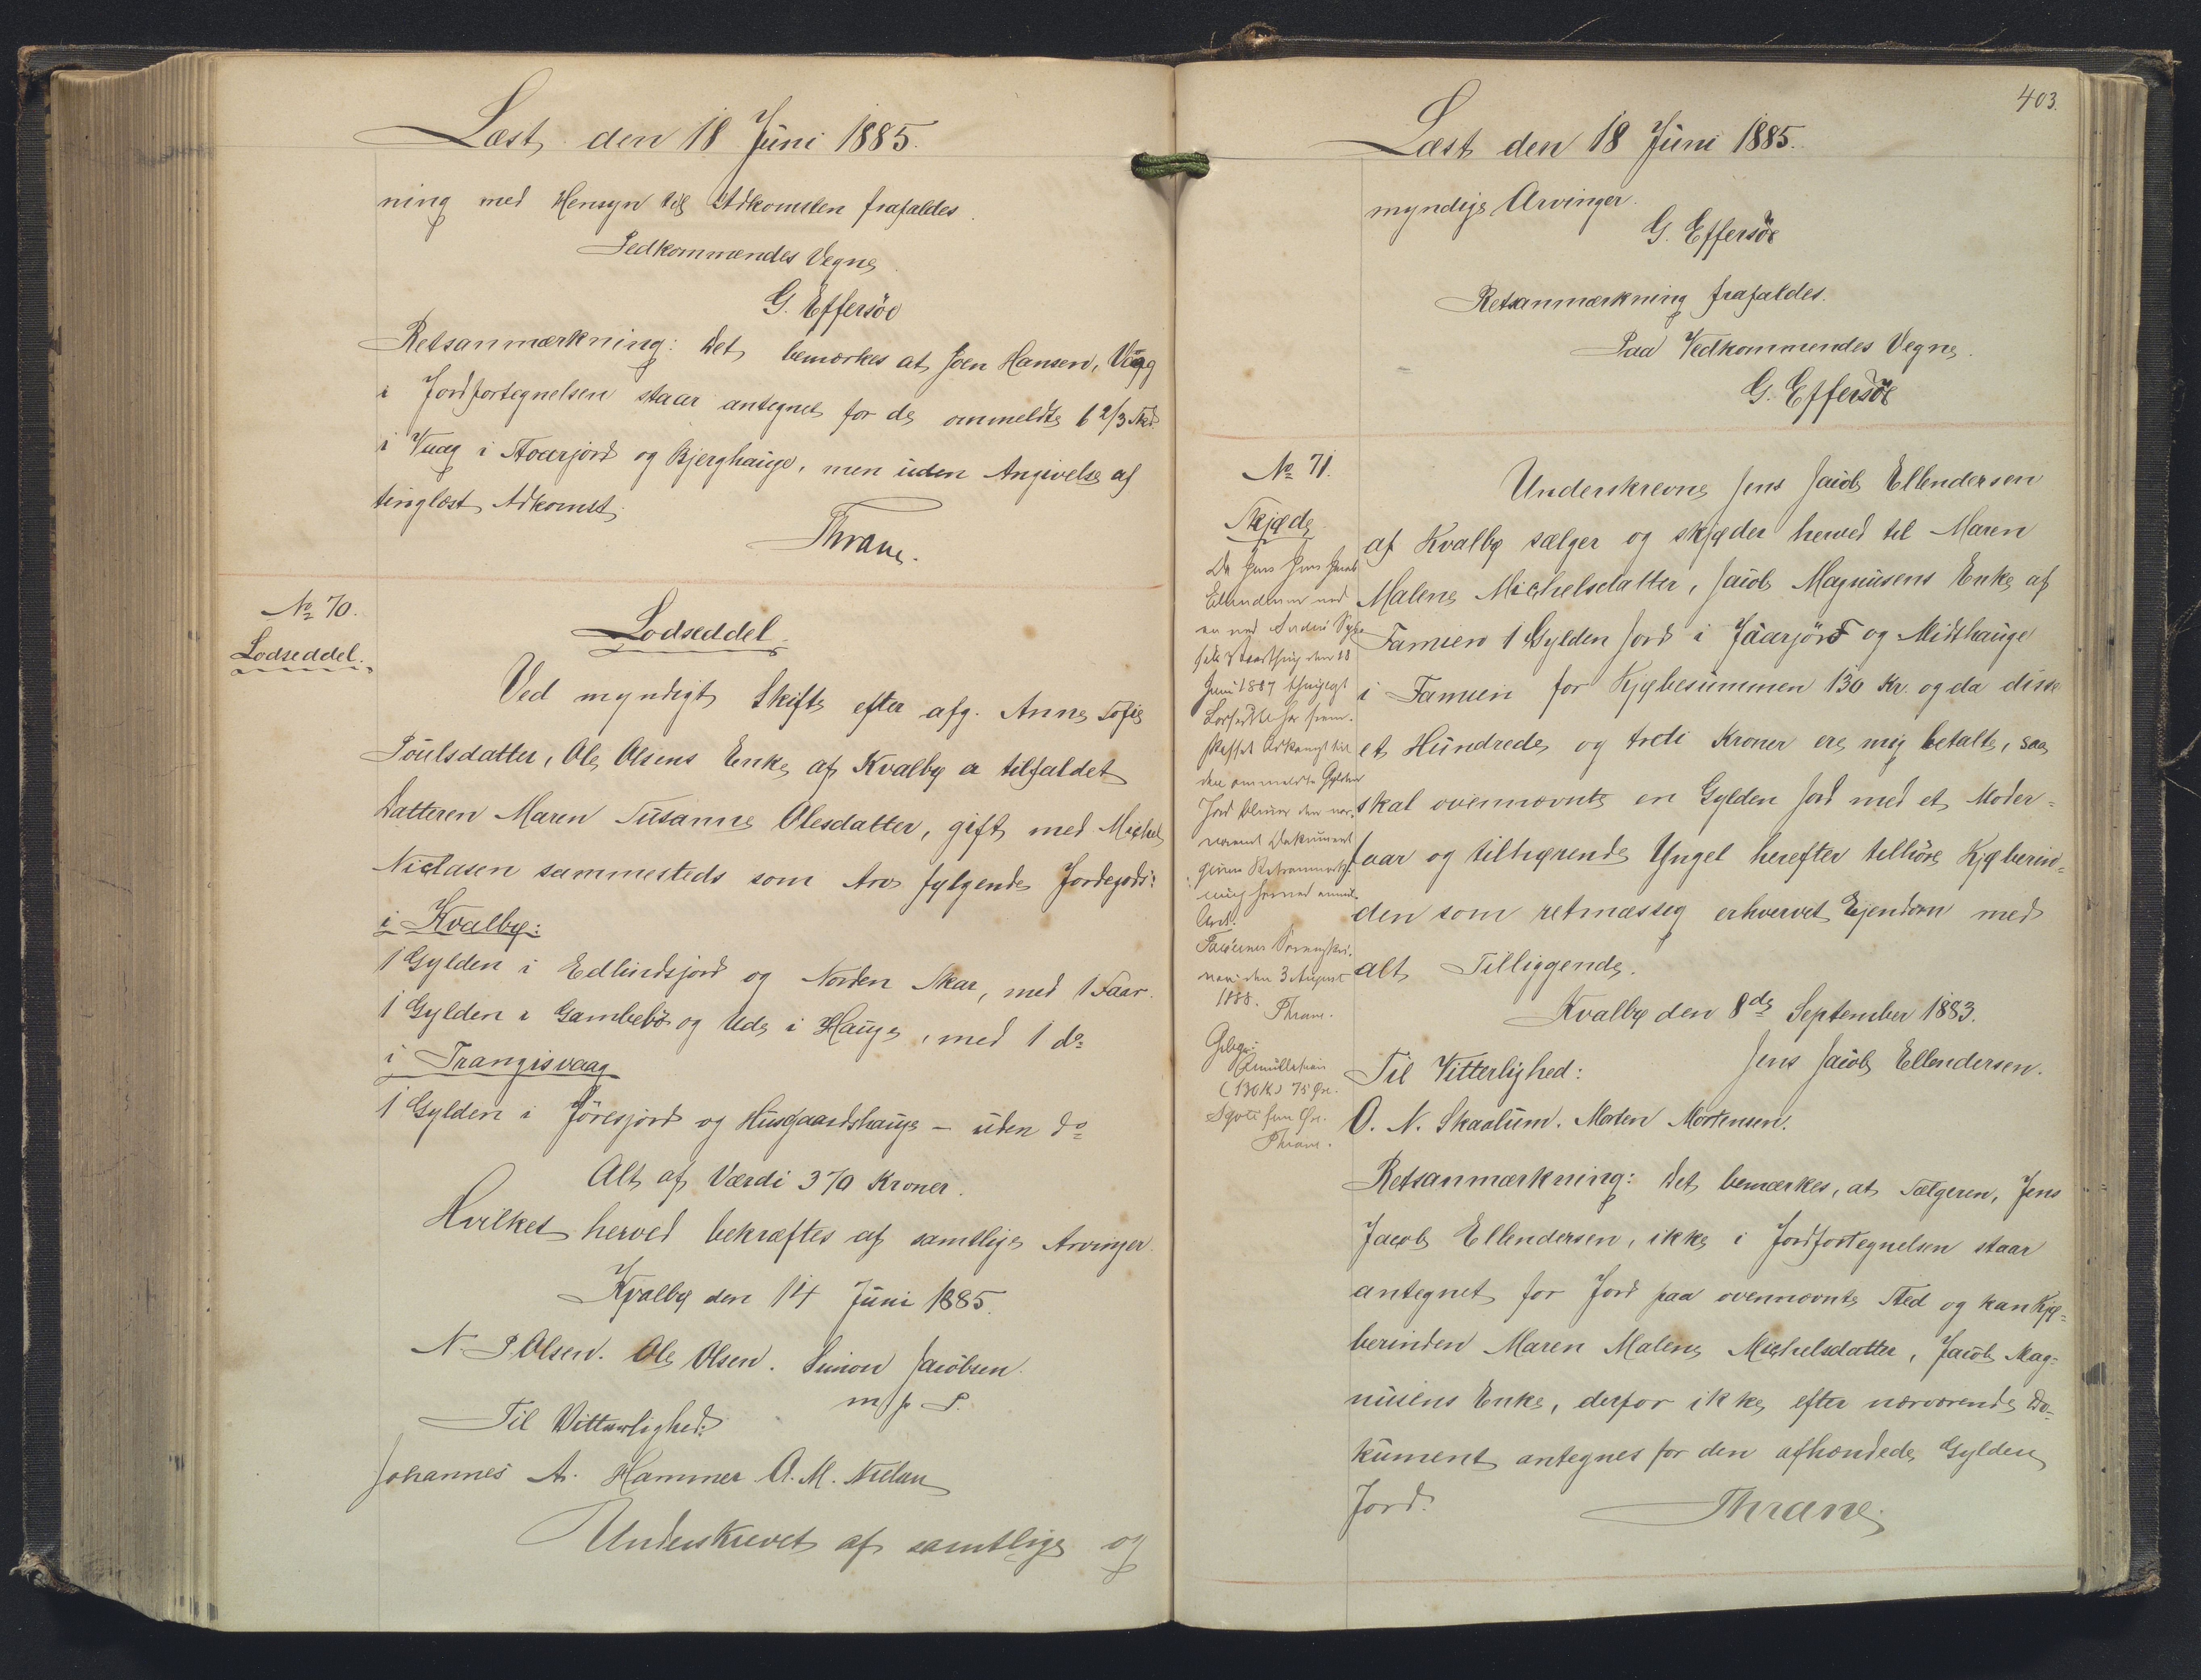 Læst den 18 Juni 1885.
ning med Hensyn til Adkomsten frafaldes.
Vedkommendes Vegne
G. Effersöe
Retsanmærkning: Det bemærkes at Joen Hansen, Vaag
i Jordfortegnelsen staar antegnet for de ommeldte 6 2/3 Skd.
i Vaag i Aoarjord og Bjerghauge, men uden Angivelse af
tinglæst Adkomst.
Thrane.
No 70.
Lodseddel.
Lodseddel.
Ved myndigt Skifte efter afg. Anne Sofie
Poulsdatter, Ole Olsens Enke af Kvalbø er tilfaldet
Datteren Maren Susanne Olesdatter, gift med Michel
Niclasen sammesteds som Arv følgende Jordegods:
i Kvalbø:
1 Gylden i Edlindsjord og Norden Skar, med 1 Faar.
1 Gylden i Gambebö og Ude i Hauge, med 1 do
i Trangisvaag
1 Gylden i Jöresjord og Husgaardshauge – uden do
Alt af Værdi 370 Kroner.
Hvilket herved bekræftes af samtlige Arvinger.
Kvalbø den 14 Juni 1885.
N. P. Olsen. Ole Olsen. Simon Jacobsen.
m. f. P.
Til Vitterlighed:
Johannes A. Hammer O. M. Niclasen
Underskrevet af samtlige og
403.
Læst den 18 Juni 1885.
myndige Arvinger.
G. Effersöe
Retsanmærkning frafaldes.
Paa Vedkommendes Vegne.
G. Effersöe
No 71.
Skjøde
Da Jens Jacob
Ellendersen ved
en ved Suderø Sys-
sels Vaarthing den 18
Juni 1887 thinglyst
Lodseddel har frem-
skaffet Adkomst til
den ommeldte Gylden
Jord bliver den nær-
værende Dokument
givne Retsanmærk-
ning herved annul-
leret.
Færøernes Sorenskri-
veri den 3 August
1888. Thrane.
Gebyr:
Annullation
(130 Kr) 75 Øre.
Syvti fem Øre.
Thrane.
Underskrevne Jens Jacob Ellendersen
af Kvalbø sælger og skjøder herved til Maren
Malene Michelsdatter, Jacob Magnusens Enke af
Famien 1 Gylden Jord i Jaarjord og Midthauge
i Famien for Kjøbesummen 130 Kr. og da disse
et Hundrede og tredi Kroner ere mig betalte, saa
skal ovennævnte en Gylden Jord med et Moder-
faar og tilhørende Yngel herefter tilhöre Kjøberin-
den som retmæssig erhvervet Ejendom med
alt Tilliggende.
Kvalbø den 8de September 1883.
Jens Jacob Ellendersen.
Til Vitterlighed:
O. N. Skaalum. Morten Mortensen.
Retsanmærkning: Det bemærkes, at Sælgeren, Jens
Jacob Ellendersen, ikke i Jordfortegnelsen staar
antegnet for Jord paa ovennævnte Sted og kan Kjø-
berinden Maren Malene Michelsdatter, Jacob Mag-
nusens Enke, derfor ikke efter nærværende Do-
kument antegnes for den afhændede Gylden
Jord.
Thrane.